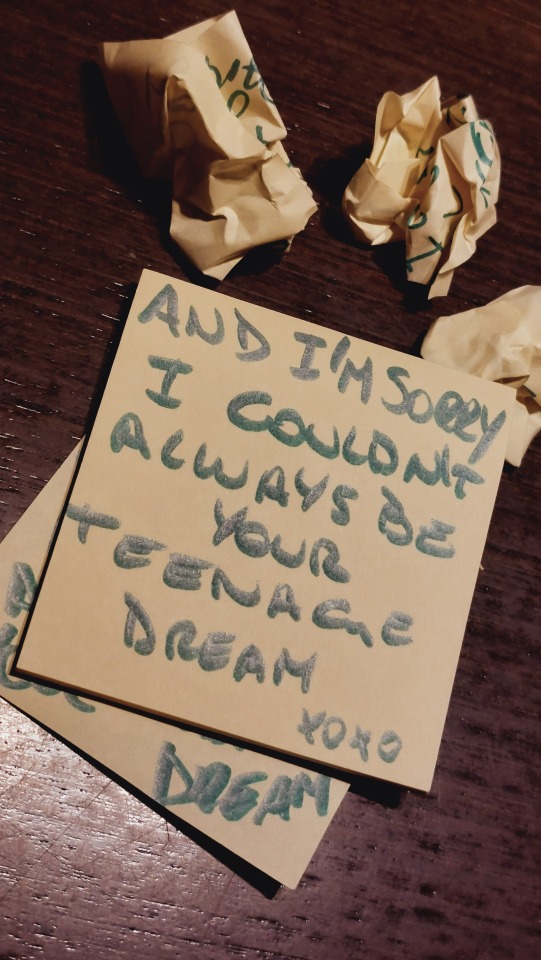 AND I'M SORRY
I COULDN'T
ALWAYS BE
YOUR
TEENAGE
DREAM
XOXO
DREAM